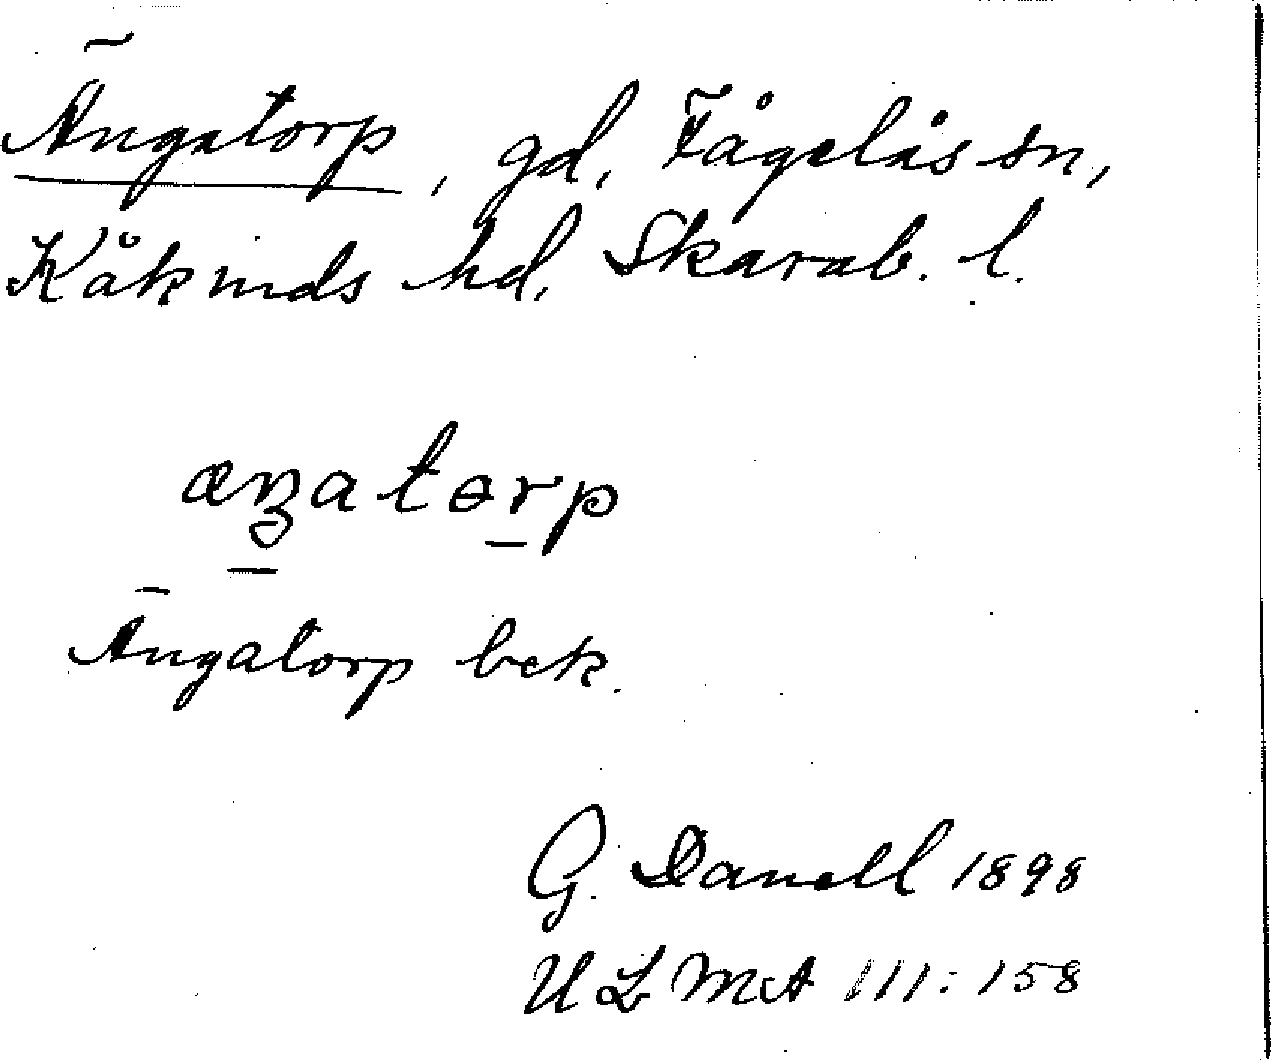 Ängatorp, gd, Fågelås sn,
Kåkinds hd, Skarab. l.
æŋatɵrp
Ängatorp bek.
G. Danell 1898
ULMA 111:158